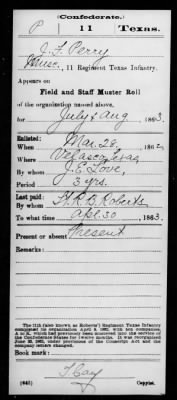 (Confederate.)
P 11 Texas.
J. F. Perry
Music., 11 Regiment Texas Infantry.
Appears on
Field and Staff Muster Roll
of the organization named above,
for July & Aug, 1863.
Enlisted:
When Mar. 28, 1862.
Where Velasco, Texas
By whom J. E. Love,
Period 3 yrs.
Last paid:
By whom H. R. B. Roberts
To what time Apl. 30, 1863.
Present or absent Present
Remarks:
The 11th (also known as Roberts') Regiment Texas Infantry
Book mark:
(645) Copyist.